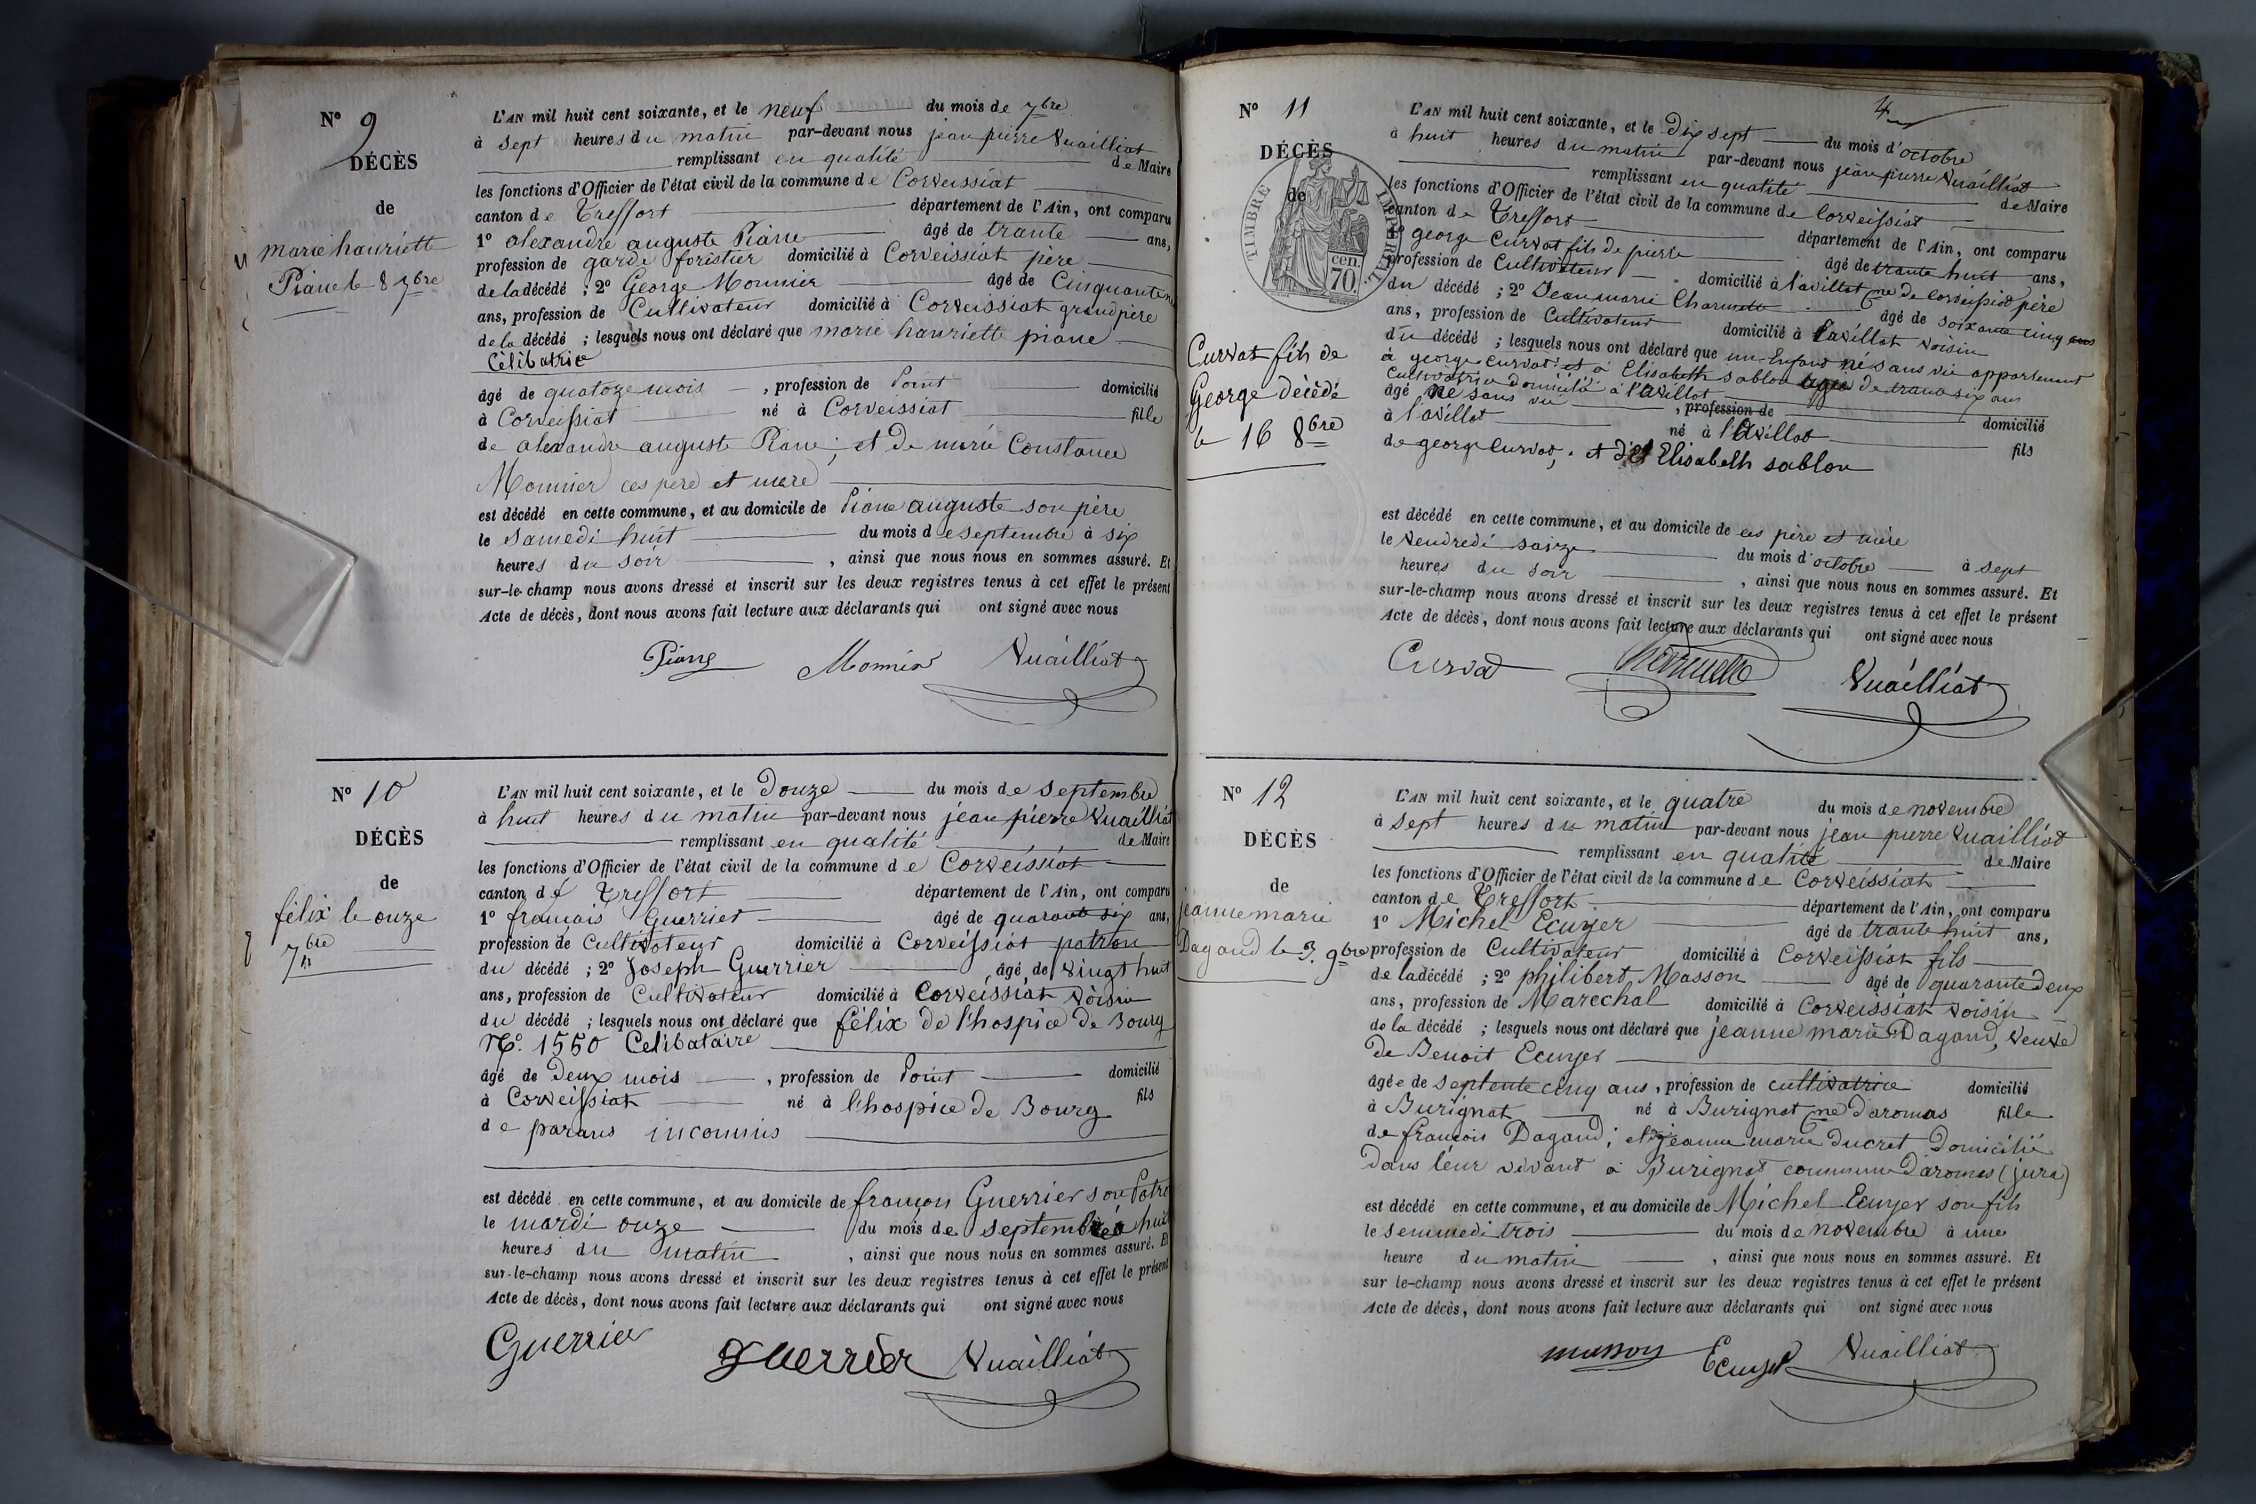 N° 9
DÉCÈS
de
marie hanriette
Piane le 8 7bre
L'AN mil huit cent soixante, et le neuf du mois de 7bre
à sept heures du matin par-devant nous jean pierre Vuailliat
remplissant en qualité de Maire
les fonctions d'Officier de l'état civil de la commune de Corveissiat
canton de Treffort département de l'Ain, ont comparu
1° alexandre auguste Piane âgé de trante ans,
profession de garde forestier domicilié à Corveissiat père
de la décédé ; 2° George Monnier âgé de Cinquante
ans, profession de Cultivateur domicilié à Corveissiat grand père
de la décédé ; lesquels nous ont déclaré que marie hanriette piane
Célibatrice
âgé de quatoze mois , profession de Point domicilié
à Corveissiat né à Corveissiat fille
de alexandre auguste Piane ; et de marie Constance
Monnier ces père et mere
est décédé en cette commune, et au domicile de Piane auguste son père
le samedi huit du mois de septembre à six
heures du soir , ainsi que nous nous en sommes assuré. Et
sur-le-champ nous avons dressé et inscrit sur les deux registres tenus à cet effet le présent
Acte de décès, dont nous avons fait lecture aux déclarants qui ont signé avec nous
Piane Monnier Vuailliat
N° 10
DÉCÈS
de
félix le onze
7bre
L'AN mil huit cent soixante, et le Douze du mois de septembre
à huit heures du matin par-devant nous jéan pierre Vuailliat
remplissant en qualité de Maire
les fonctions d'Officier de l'état civil de la commune de Corveissiat
canton de Treffort département de l'Ain, ont comparu
1° francois Guerrier âgé de quarante six ans,
profession de Cultivateur domicilié à Corveissiat patron
du décédé ; 2° Joseph Guerrier âgé de vingt huit
ans, profession de Cultivateur domicilié à Corveissiat voisin
du décédé ; lesquels nous ont déclaré que félix de l'hospice de Bourg
N°. 1550 Celibataire
âgé de Deux mois , profession de Point domicilié
à Corveissiat né à l'hospice de Bourg fils
de parans inconnus
est décédé en cette commune, et au domicile de françois Guerrier son Patron
le mardi onze du mois de septembre à huit
heures du matin , ainsi que nous nous en sommes assuré. Et
sur-le-champ nous avons dressé et inscrit sur les deux registres tenus à cet effet le présent
Acte de décès, dont nous avons fait lecture aux déclarants qui ont signé avec nous
Guerrier guerrier Vuailliat
N° 11
DÉCÈS
de
TIMBRE IMPÉRIAL
cen. 70.
Curvat fils de
George décédé
le 16 8bre
L'AN mil huit cent soixante, et le Dix sept du mois d'octobre
à huit heures du matin par-devant nous jean pierre Vuailliat
remplissant en qualité de Maire
les fonctions d'Officier de l'état civil de la commune de Corveissiat
canton de Treffort département de l'Ain, ont comparu
1° george Curvat fils de pierre âgé de trante huit ans,
profession de Cultivateur domicilié à l'avillat Cne de Corveissiat père
du décédé ; 2° Jean marie Charnelle âgé de soixante cinq ans
ans, profession de Cultivateur domicilié à Lavillat voisin
du décédé ; lesquels nous ont déclaré que un Enfant né sans vie appartenent
à george Curvat et à Elisabeth sablon agée de trans six ans
Cultivatrice domicilié à l'avillat
âgé né sans vie , profession de domicilié
à l'avillat né à l'avillat fils
de george Curvat, et d'Elisabelh sablon
est décédé en cette commune, et au domicile de ces père et mère
le Vendredi saize du mois d'octobre à sept
heures du soir , ainsi que nous nous en sommes assuré. Et
sur-le-champ nous avons dressé et inscrit sur les deux registres tenus à cet effet le présent
Acte de décès, dont nous avons fait lecture aux déclarants qui ont signé avec nous
Curvat Charnelle Vuailliat
N° 12
DÉCÈS
de
jeanne marie
Dagand le 3. 9bre
L'AN mil huit cent soixante, et le quatre du mois de novembre
à sept heures du matin par-devant nous jean pierre Vuailliat
remplissant en qualité de Maire
les fonctions d'Officier de l'état civil de la commune de Corveissiat
canton de Treffort département de l'Ain, ont comparu
1° Michel Ecuyer âgé de trante huit ans,
profession de Cultivateur domicilié à Corveissiat fils
de la décédé ; 2° philibert Masson âgé de quarante deux
ans, profession de Marechal domicilié à Corveissiat voisin
de la décédé ; lesquels nous ont déclaré que jeanne marie Dagand, veuve
de Benoit Ecuyer
âgée de septente cinq ans , profession de cultivatrice domicilié
à Burignat né à Burignat Cne D'aromas fille
de françois Dagand ; et jeanne marie Ducret Domicilié
Dans leur vivant à Burignat commune D'aromas (jura)
est décédé en cette commune, et au domicile de Michel Ecuyer son fils
le semmedi trois du mois de novembre à une
heure du matin , ainsi que nous nous en sommes assuré. Et
sur le-champ nous avons dressé et inscrit sur les deux registres tenus à cet effet le présent
Acte de décès, dont nous avons fait lecture aux déclarants qui ont signé avec nous
masson Ecuyer Vuailliat